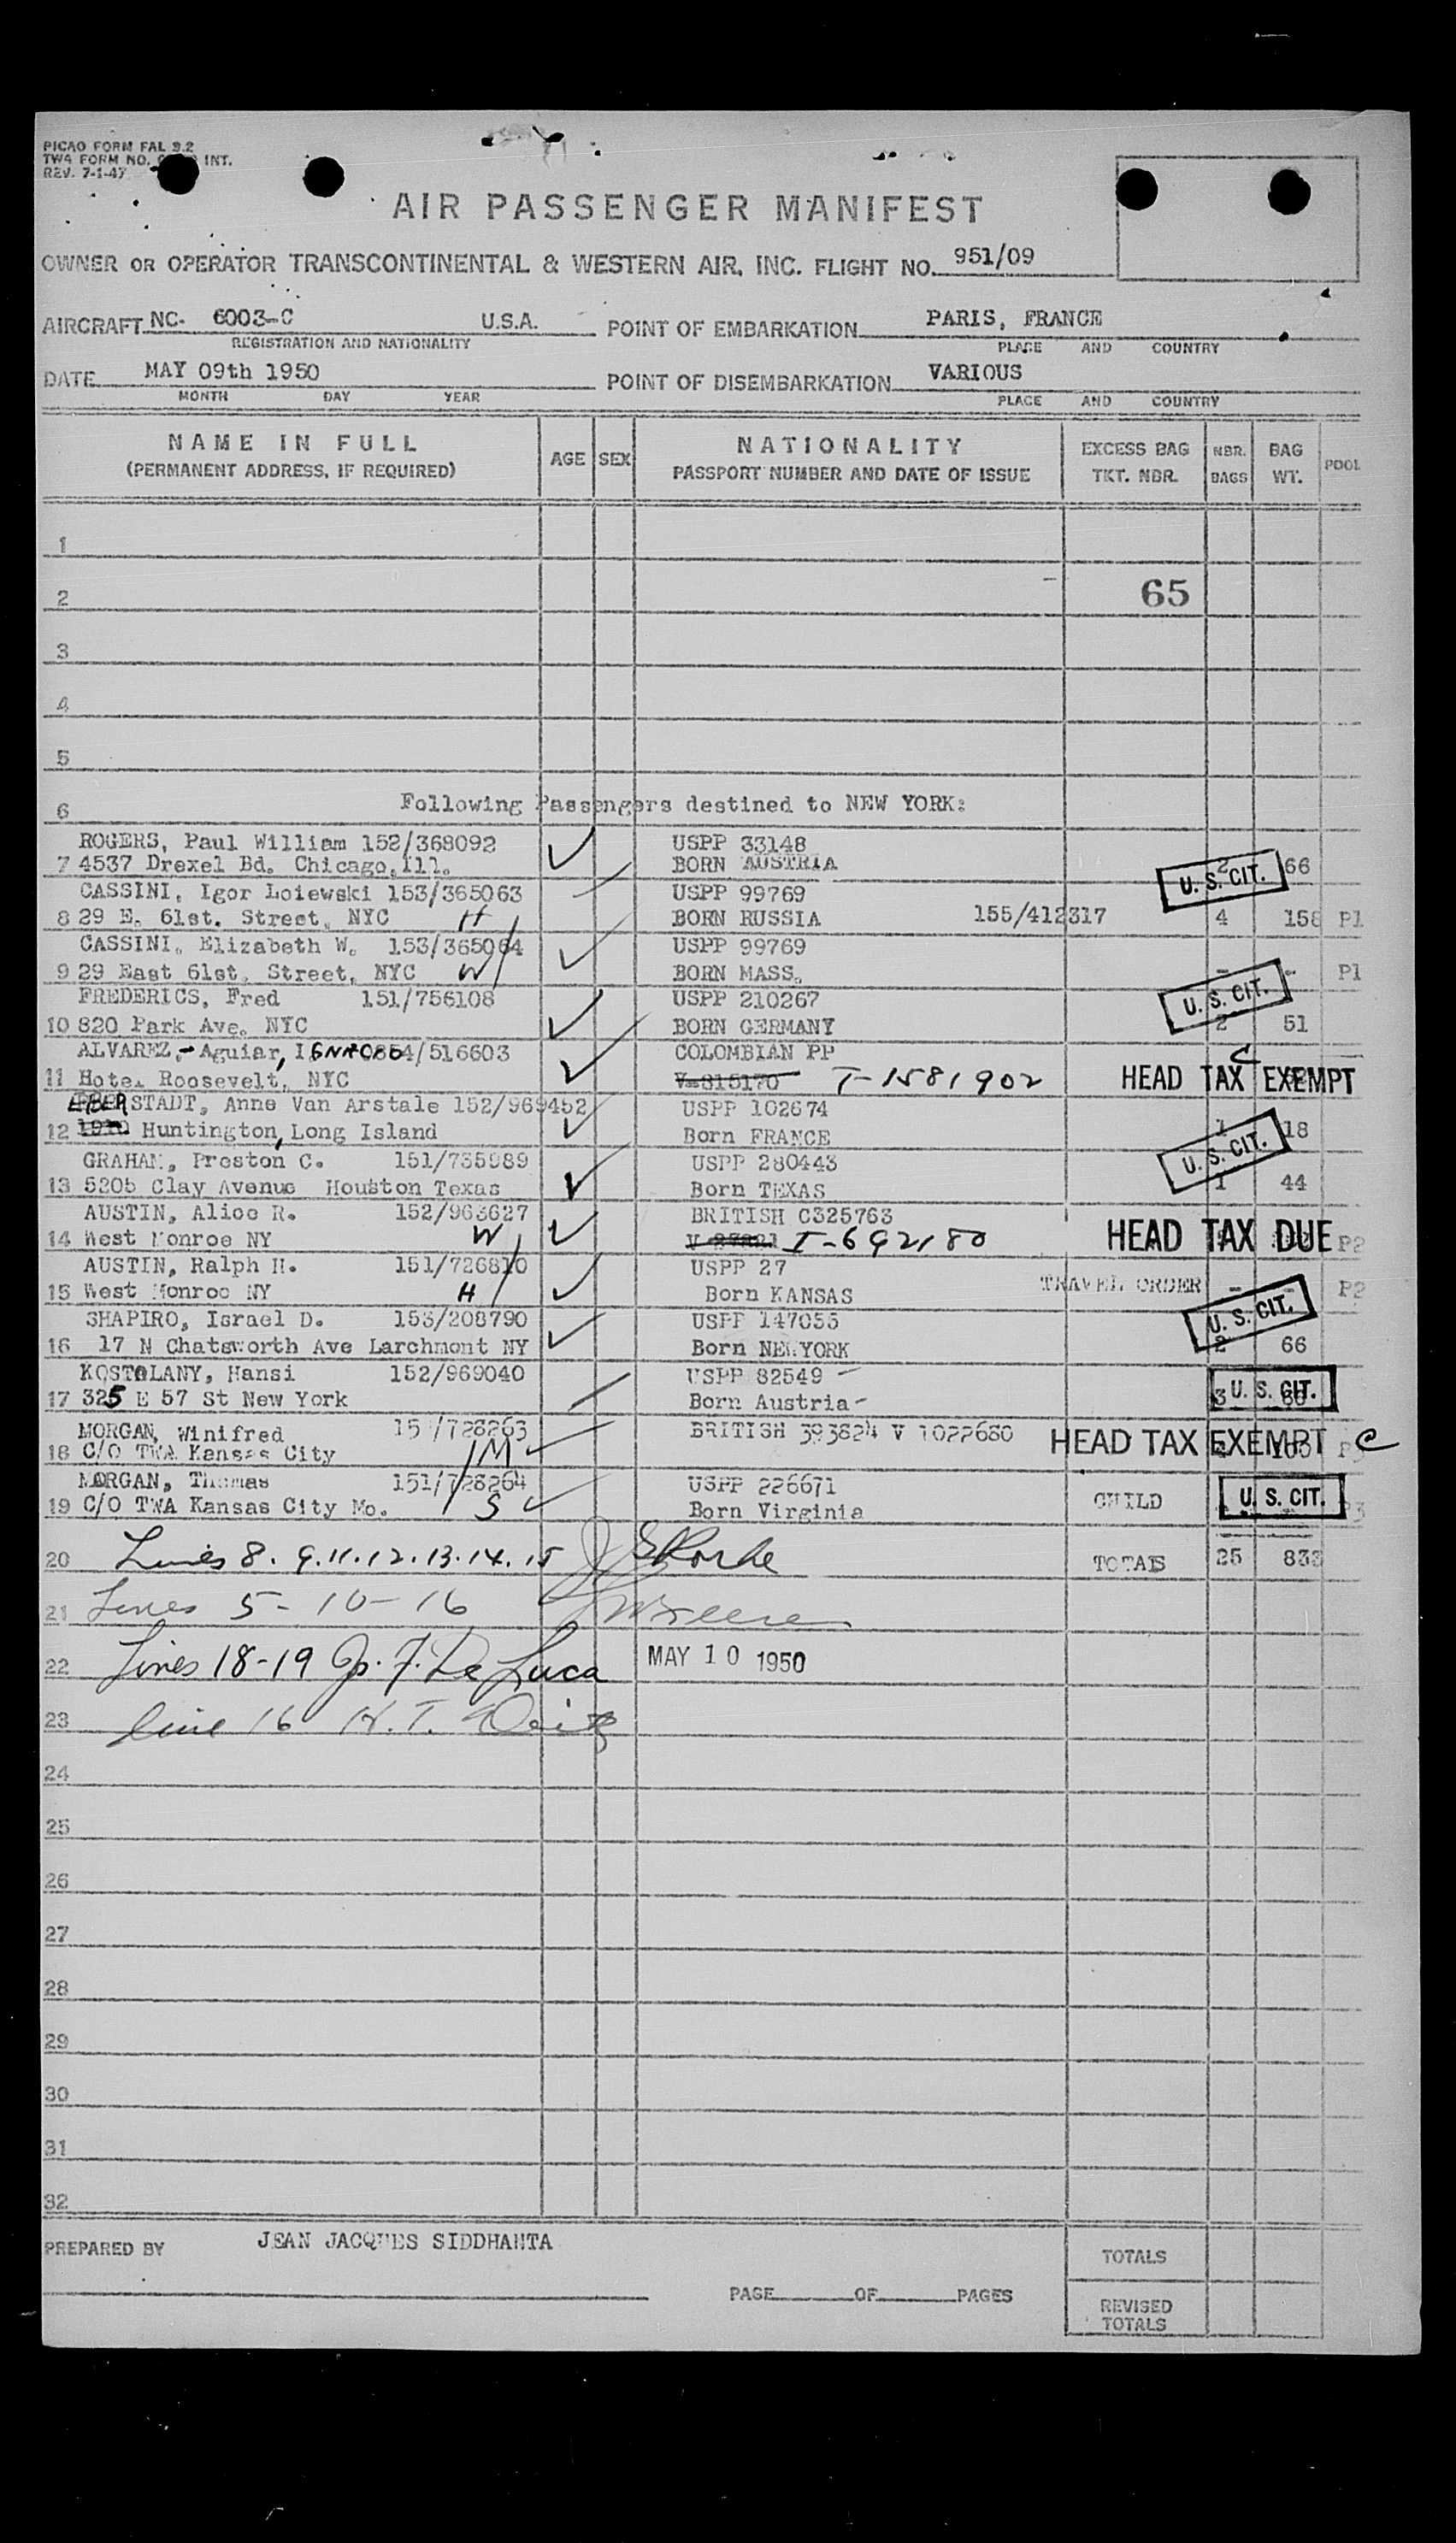 PICAO FORM FAL 9.2
TWA FORM NO. INT.
REV. 7-1-47
AIR PASSENGER MANIFEST
OWNER OR OPERATOR TRANSCONTINENTAL & WESTERN AIR, INC. FLIGHT NO. 951/09
AIRCRAFT NC- 6003-C U.S.A. POINT OF EMBARKATION PARIS, FRANCE
REGISTRATION AND NATIONALITY PLACE AND COUNTRY
DATE MAY 09th 1950 POINT OF DISEMBARKATION VARIOUS
MONTH DAY YEAR PLACE AND COUNTRY
NAME IN FULL AGE SEX NATIONALITY EXCESS BAG NBR. BAG POOL
(PERMANENT ADDRESS, IF REQUIRED) PASSPORT NUMBER AND DATE OF ISSUE TKT. NBR. BAGS WT.
1
2 65
3
4
5
6 Following Passengers destined to NEW YORK:
ROGERS, Paul William 152/368092 USPP 33148
7 4537 Drexel Bd. Chicago, Ill. BORN AUSTRIA 2 U. S. CIT. 66
CASSINI, Igor Loiewski 153/365063 USPP 99769
8 29 E. 61st. Street, NYC H BORN RUSSIA 155/412317 4 158 P1
CASSINI, Elizabeth W. 153/365064 USPP 99769
9 29 East 61st. Street, NYC W BORN MASS. - - P1
FREDERICS, Fred 151/756108 USPP 210267 U. S. CIT.
10 820 Park Ave. NYC BORN GERMANY 2 51
ALVAREZ,- Aguiar, /516603 COLOMBIAN PP C
11 Hotel Roosevelt, NYC V-815170 T-1581902 HEAD TAX EXEMPT
EBERSTADT, Anne Van Arstale 152/969452 USPP 102674
12 Huntington, Long Island Born FRANCE 1 18
GRAHAM, Preston C. 151/735989 USPP 280443 U. S. CIT.
13 5205 Clay Avenue Houston Texas Born TEXAS 1 44
AUSTIN, Alice R. 152/963627 BRITISH C325763
14 West Monroe NY W V I-692180 HEAD TAX DUE P2
AUSTIN, Ralph H. 151/726810 USPP 27
15 West Monroe NY H Born KANSAS TRAVEL ORDER - - P2
SHAPIRO, Israel D. 153/208790 USPP 147053 U. S. CIT.
16 17 N Chatsworth Ave Larchmont NY Born NEW YORK 2 66
KOSTOLANY, Hansi 152/969040 USPP 82549
17 325 E 57 St New York Born Austria 3 U. S. CIT.
MORGAN, Winifred /728263 BRITISH 393824 V 1022680
18 C/O TWA Kansas City M HEAD TAX EXEMPT C P3
MORGAN, Thomas 151/728264 USPP 226671
19 C/O TWA Kansas City Mo. S Born Virginia CHILD U. S. CIT. P3
20 Lines 8. 9.11.12.13.14.15 TOTALS 25 833
21 Lines 5-10-16
22 Lines 18-19 De Luca MAY 10 1950
23 line 16 H. T.
24
25
26
27
28
29
30
31
32
PREPARED BY JEAN JACQUES SIDDHANTA TOTALS
PAGE OF PAGES REVISED
TOTALS